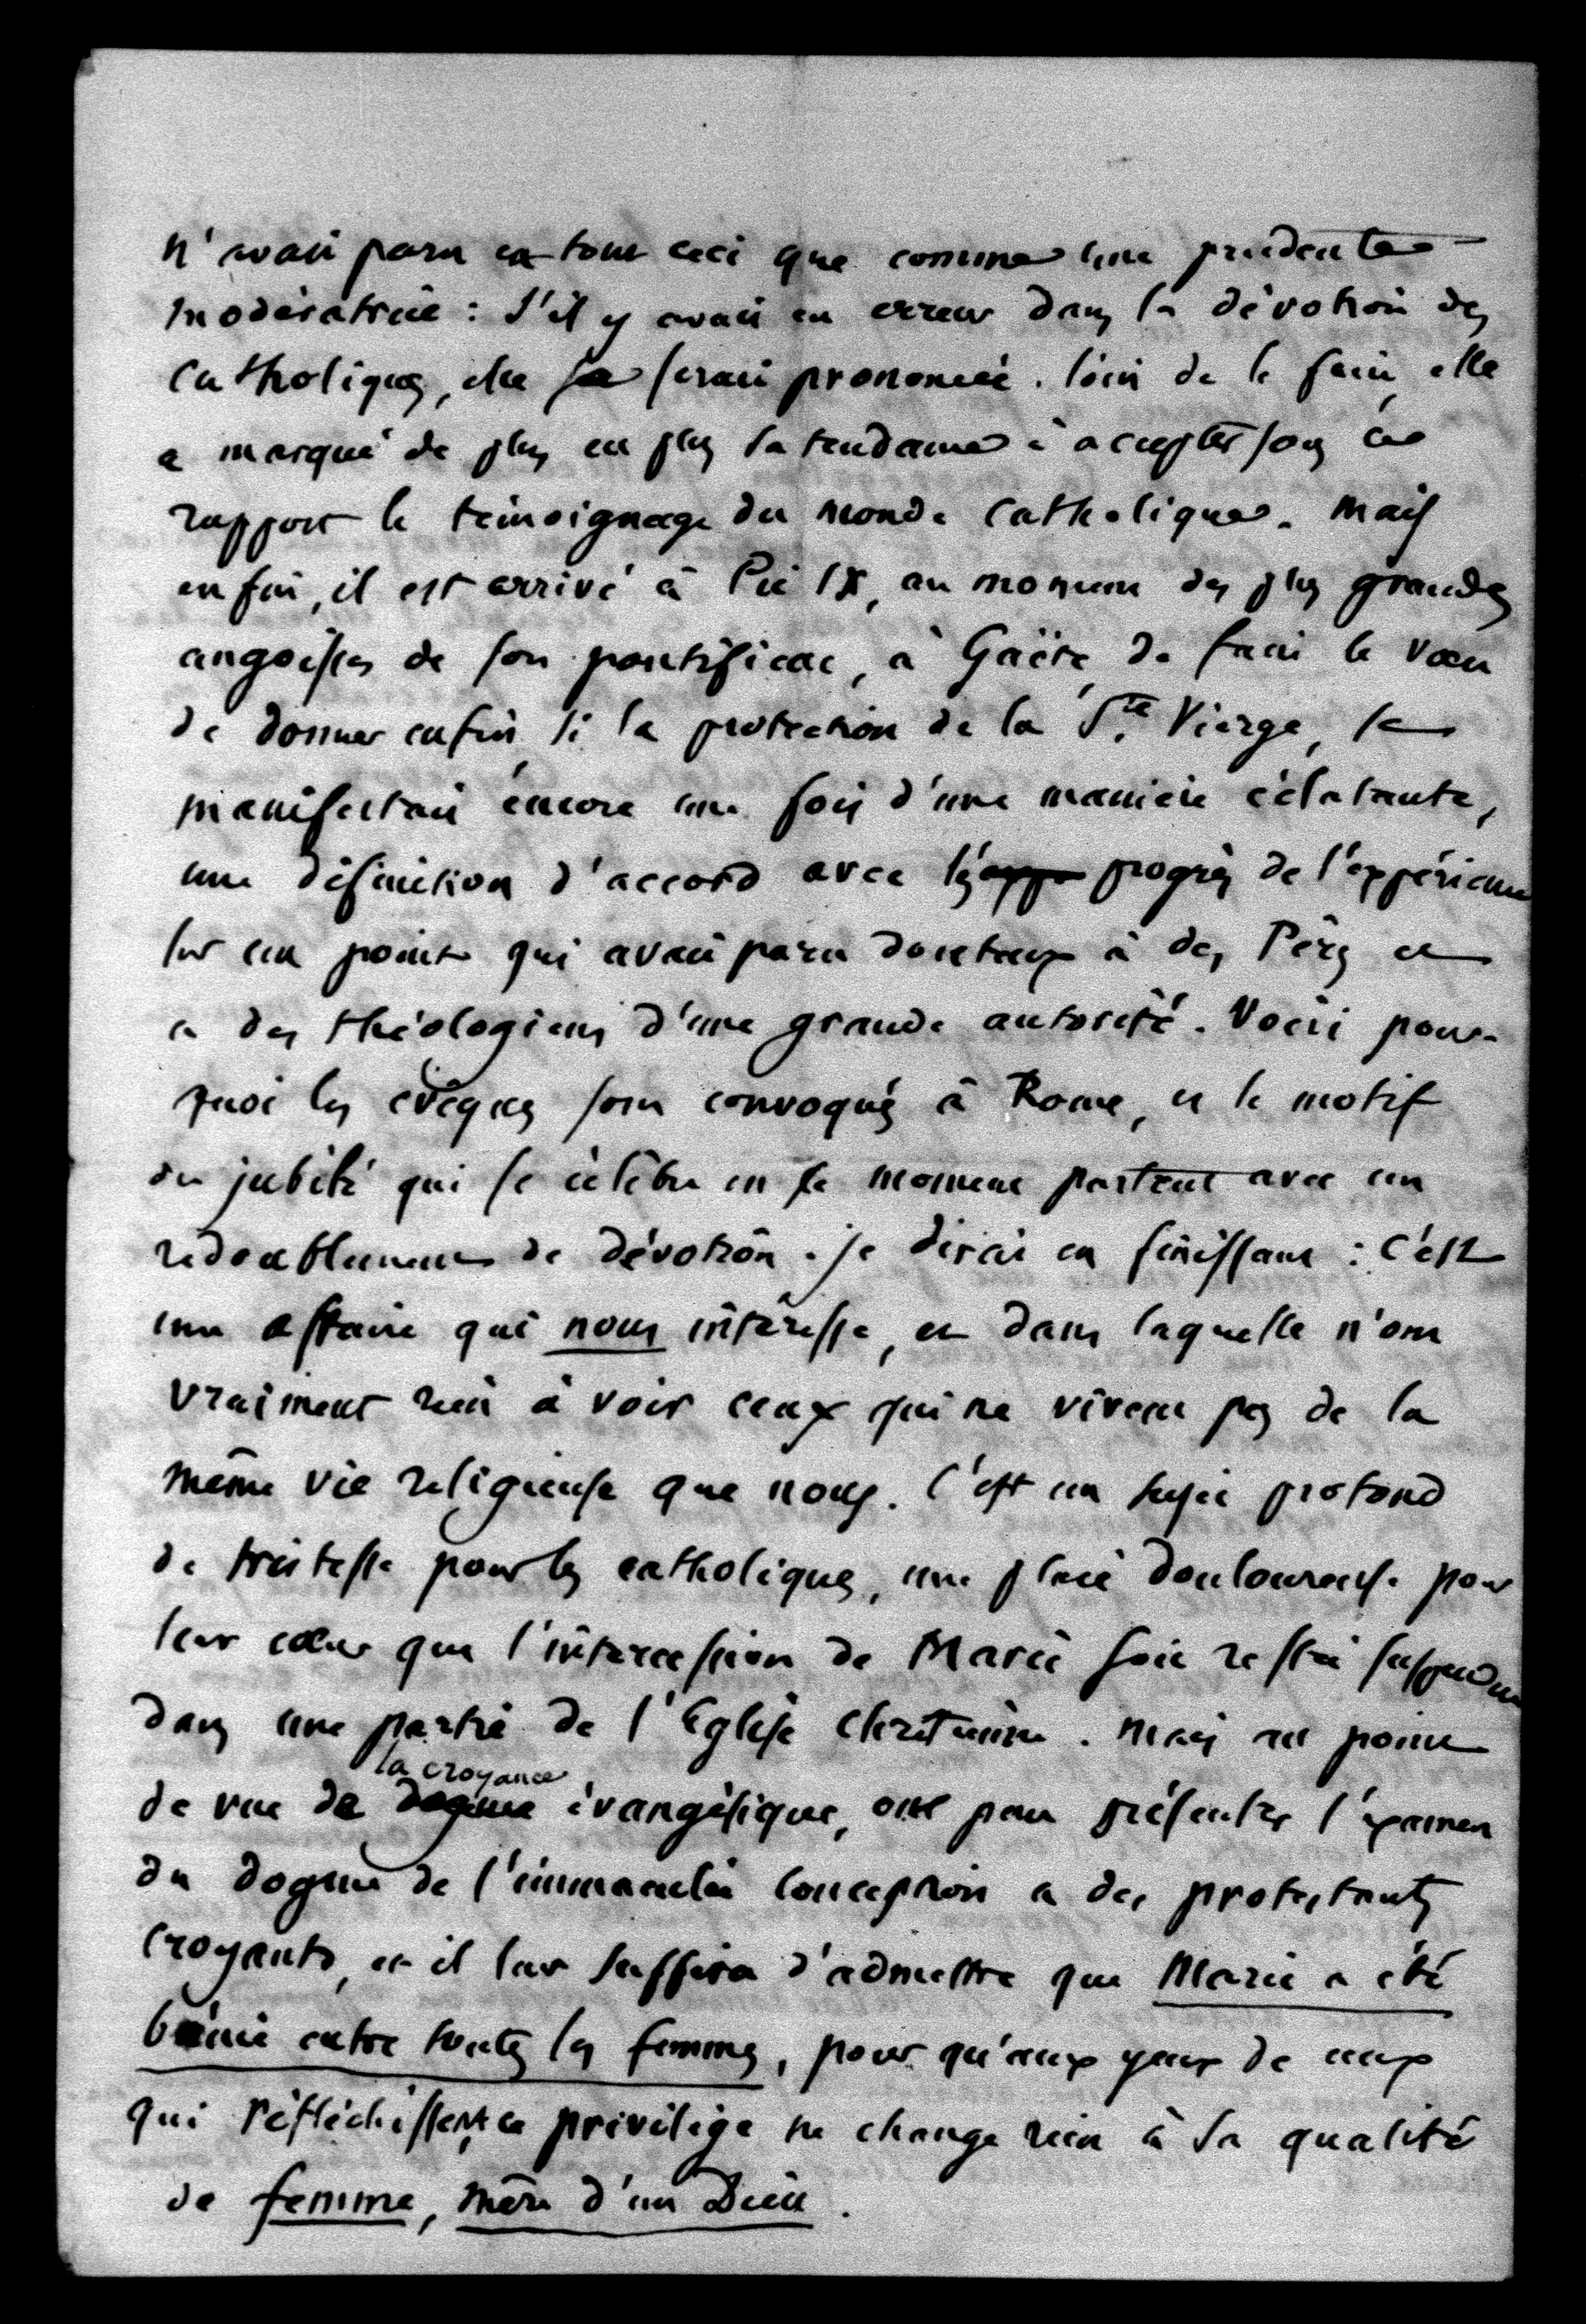 n'avait paru en tout ceci que comme une prudente
modératrice : s'il y avait eu erreur dans la dévotion des
catholiques, elle se serait prononcée. loin de le faire, elle
a marqué de plus en plus sa tendance à accepter sous ce
rapport le témoignage du monde catholique. Mais
enfin, il est arrivé à Pie IX, au moment des plus grandes
angoisses de son pontificat, à Gaëte, de faire le vœu
de donner enfin, si la protection de la Ste Vierge, se
manifestait encore une fois d'une manière éclatante,
une définition d'accord avec les progrès de l'expérience
sur un point qui avait paru douteux à des Pères et
à des théologiens d'une grande autorité. Voici pour-
quoi les évêques sont convoqués à Rome, et le motif
du jubilé qui se célèbre en ce moment partout avec un
redoublement de dévotion. je dirai en finissant : C'est
une affaire qui nous intéresse, et dans laquelle n'ont
vraiment rien à voir ceux qui ne vivent pas de la
même vie religieuse que nous. C'est un sujet profond
de tristesse pour les catholiques, une plaie douloureuse pour
leur cœur que l'intercession de Marie soit restée suspendue
dans une partie de l'Eglise chrétienne. Mais au point
la croyance
de vue de dogme évangélique, on peut présenter l'examen
du dogme de l'immaculée conception à des protestants
croyants, et il leur suffira d'admettre que Marie a été
bénie entre toutes les femmes, pour qu'aux yeux de ceux
qui réfléchissent, ce privilège ne change rien à sa qualité
de femme, mère d'un Dieu.